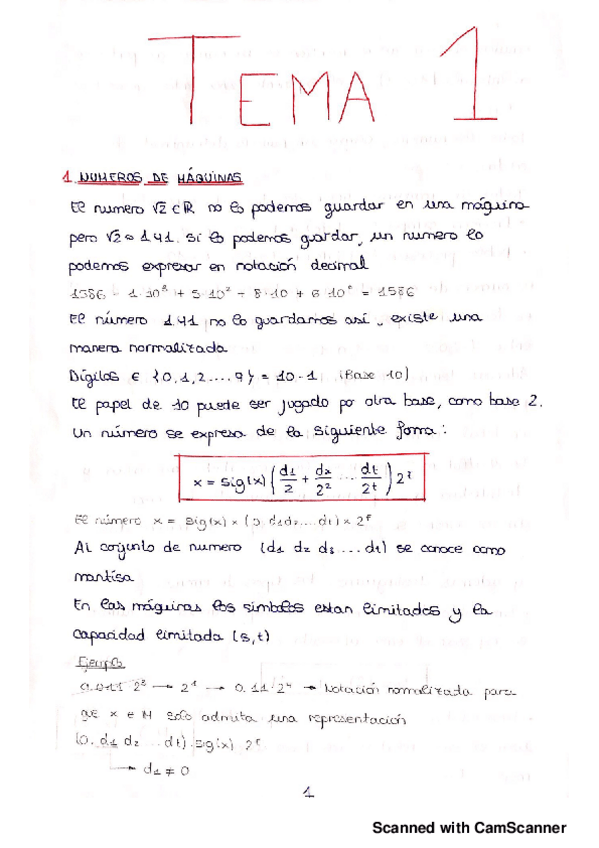 TEMA 1
1 NUMEROS DE MÁQUINAS
El numero √2 ∈ ℝ no lo podemos guardar en una máquina
pero √2 ≈ 1.41. si lo podemos guardar, un numero lo
podemos expresar en notación decimal
1586 = 1·10³ + 5·10² + 8·10 + 6·10⁰ = 1586
El número 1.41 no lo guardamos así, existe una
manera normalizada
Dígitos ∈ {0,1,2....9} = 10-1 (Base 10)
El papel de 10 puede ser jugado por otra base, como base 2.
Un número se expresa de la siguiente forma:
x = sig(x) (d1/2 + d2/2² ... dt/2^t) 2^
El número x = sig(x) × (0.d1d2....dt) × 2
Al conjunto de numero (d1 d2 d3 ... dt) se conoce como
mantisa
En las máquinas los simbolos estan limitados y la
capacidad limitada (s,t)
Ejemplo
0.011 2 → 2 → 0.11·2 → Notación normalizada para
que x ∈ M solo admita una representación
(0. d1 d2 ... dt).sig(x) 2
→ d1 ≠ 0
1
Scanned with CamScanner